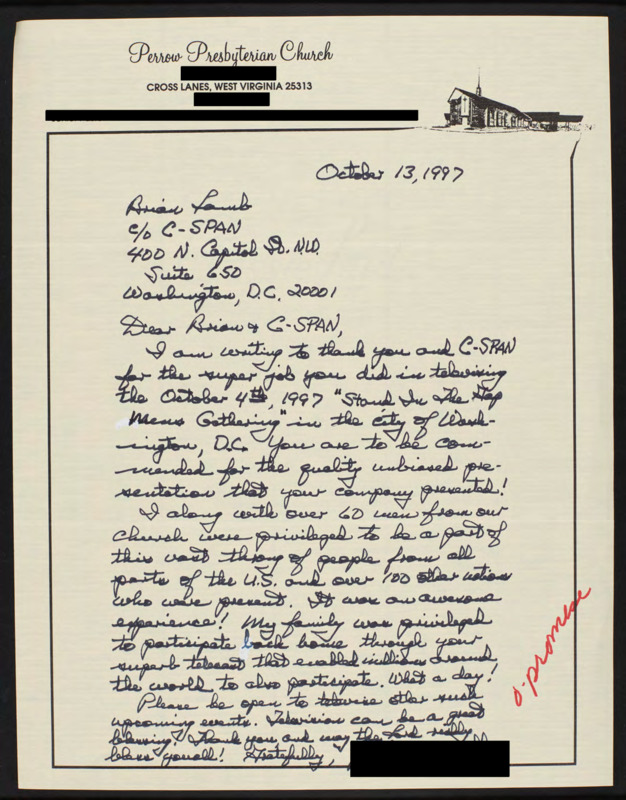 Perrow Presbyterian Church
CROSS LANES, WEST VIRGINIA 25313
October 13, 1997
Brian Lamb
c/o C-SPAN
400 N. Capitol St. N.W.
Suite 650
Washington, D.C. 20001
Dear Brian & C-SPAN,
I am writing to thank you and C-SPAN
for the super job you did in televising
the October 4th, 1997 "Stand In The Gap
Mens Gathering" in the city of Wash-
ington, D.C. You are to be com-
mended for the quality unbiased pre-
sentation that your company presented!
I along with over 60 men from our
church were privileged to be a part of
this vast throng of people from all
parts of the U.S. and over 100 other nations
who were present. It was an awesome
experience! My family was privileged
to participate back home through your
superb telecast that enabled millions around
the world to also participate. What a day!
Please be open to televise other such
upcoming events. Television can be a great
blessing! Thank you and may the Lord really
bless youall! Gratefully,
o-promise